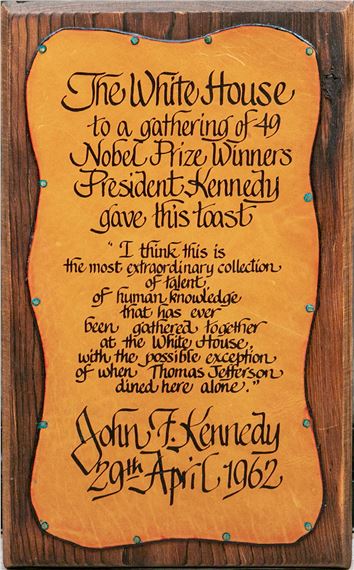 The White House
to a gathering of 49
Nobel Prize Winners
President Kennedy
gave this toast
"I think this is
the most extraordinary collection
of talent
of human knowledge
that has ever
been gathered together
at the White House,
with the possible exception
of when Thomas Jefferson
dined here alone."
John F. Kennedy
29th April 1962